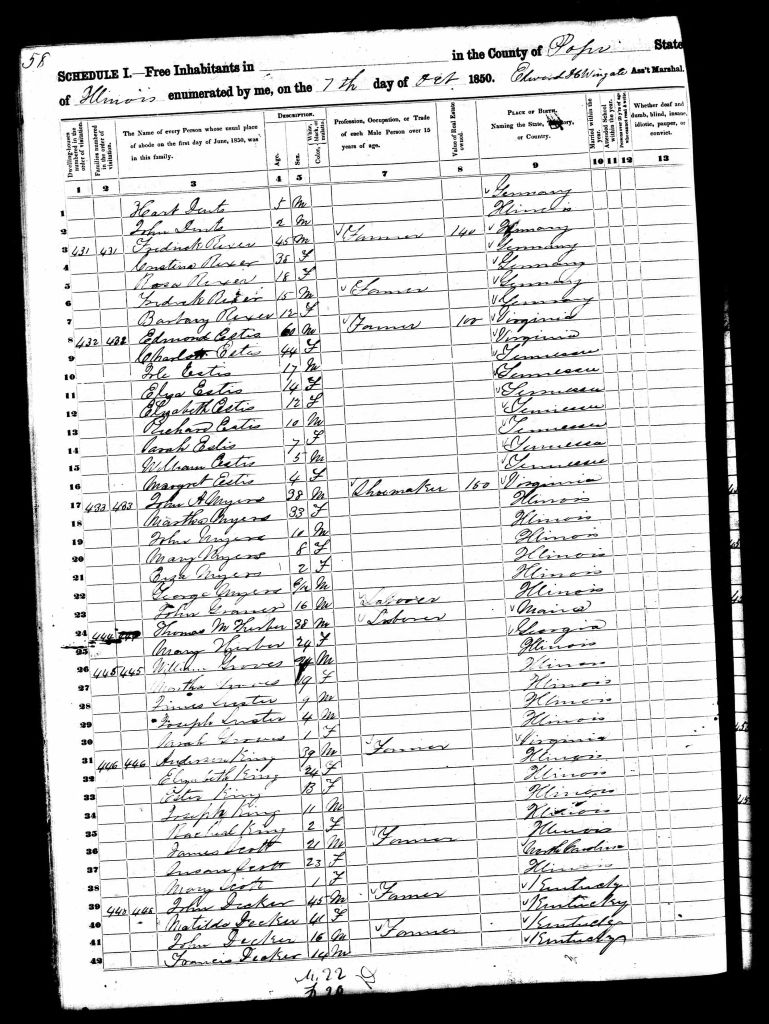 58
SCHEDULE I.—Free Inhabitants in in the County of Pope State
of Illinois enumerated by me, on the 7th day of Oct 1850. Edward Wingate Ass't Marshal.
Dwelling-houses numbered in the order of visitation.
Families numbered in the order of visitation.
The Name of every Person whose usual place of abode on the first day of June, 1850, was in this family.
DESCRIPTION.
Age.
Sex.
Color, White, black, or mulatto.
Profession, Occupation, or Trade of each Male Person over 15 years of age.
Value of Real Estate owned.
PLACE OF BIRTH.
Naming the State, or Country.
Married within the year.
Attended School within the year.
Whether deaf and dumb, blind, insane, idiotic, pauper, or convict.
1 2 3 4 5 7 8 9 10 11 12 13
1 Hart 5 M Germany
2 John 2 M Illinois
3 431 431 Fredrick Rexer 45 M Farmer 140 Germany
4 Cristina Rexer 38 F Germany
5 Rosa Rexer 18 F Germany
6 Fredrick Rexer 15 M Farmer Germany
7 Barbary Rexer 12 F Germany
8 432 432 Edmond Estis 60 M Farmer 100 Virginia
9 Charlott Estis 44 F Virginia
10 Estis 17 M Tennessee
11 Eliza Estis 14 F Tennessee
12 Elizabeth Estis 12 F Tennessee
13 Richard Estis 10 M Tennessee
14 Sarah Estis 7 F Tennessee
15 William Estis 5 M Tennessee
16 Margret Estis 4 F Tennessee
17 433 433 John A Myers 38 M Shoemaker 150 Virginia
18 Martha Myers 33 F Illinois
19 John Myers 10 M Illinois
20 Mary Myers 8 F Illinois
21 Myers 2 F Illinois
22 George Myers M Illinois
23 John 16 M Laborer Illinois
24 444 Thomas M 38 M Laborer Maine
25 Mary 24 F Georgia
26 445 445 William Groves M Illinois
27 Martha Groves 19 F Illinois
28 Luster 9 M Illinois
29 Joseph Luster 4 M Illinois
30 Sarah Groves 1 F Illinois
31 446 446 Anderson King 39 M Farmer Virginia
32 Elizabeth King 24 F Illinois
33 Ester King 13 F Illinois
34 Joseph King 11 M Illinois
35 Rachel King 2 F Illinois
36 James Scott 21 M Farmer Illinois
37 Susan Scott 23 F North Carolina
38 Mary Scott 1 F Illinois
39 448 John Decker 45 M Farmer Kentucky
40 Matilda Decker 41 F Kentucky
41 John Decker 16 M Farmer Kentucky
42 Francis Decker 14 M Kentucky
M. 22
F 20